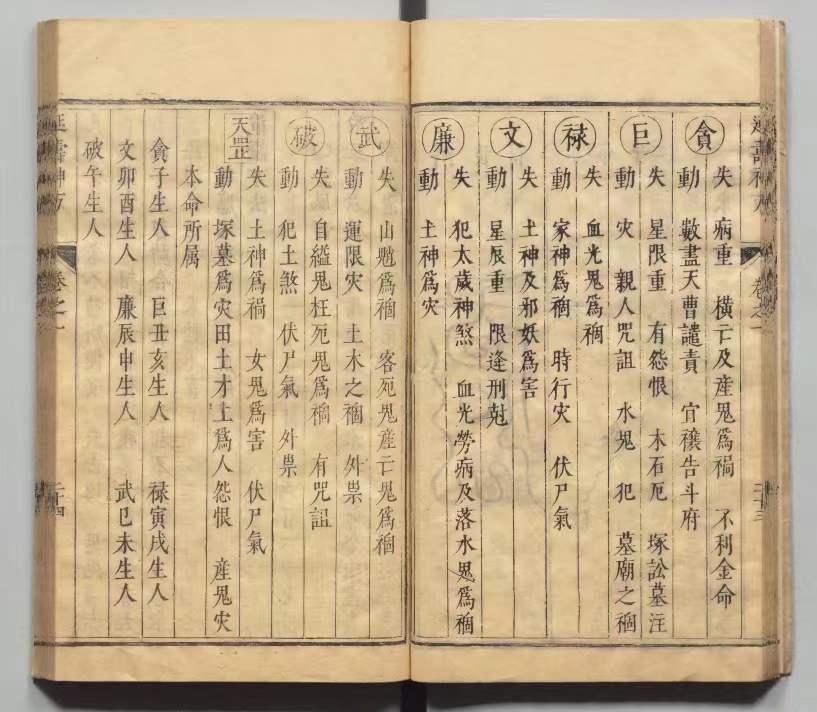 延壽神方
卷之一
二十三
貪
失　病重　橫亡及産鬼爲禍　不利金命
動　數盡天曹譴責　宜禳告斗府
巨
失　星限重　有怨恨　木石厄　塚訟墓注
動　灾　親人咒詛　水鬼　犯　墓廟之禍
祿
失　血光鬼爲禍
動　家神爲禍　時行灾　伏尸氣
文
失　土神及邪妖爲害
動　星辰重　限逢刑尅
廉
失　犯太歲神煞　血光勞病及落水鬼爲禍
動　土神爲灾
武
失　山魈爲禍　客死鬼産亡鬼爲禍
動　運限灾　土木之禍　外祟
破
失　自縊鬼枉死鬼爲禍　有咒詛
動　犯土煞　伏尸氣　外祟
天罡
失　土神爲禍　女鬼爲害　伏尸氣
動　塚墓爲灾田土才土爲人怨恨　産鬼灾
本命所属
貪子生人　巨丑亥生人　祿寅戌生人
文卯酉生人　廉辰申生人　武巳未生人
破午生人
延壽神方
卷之一
二十四